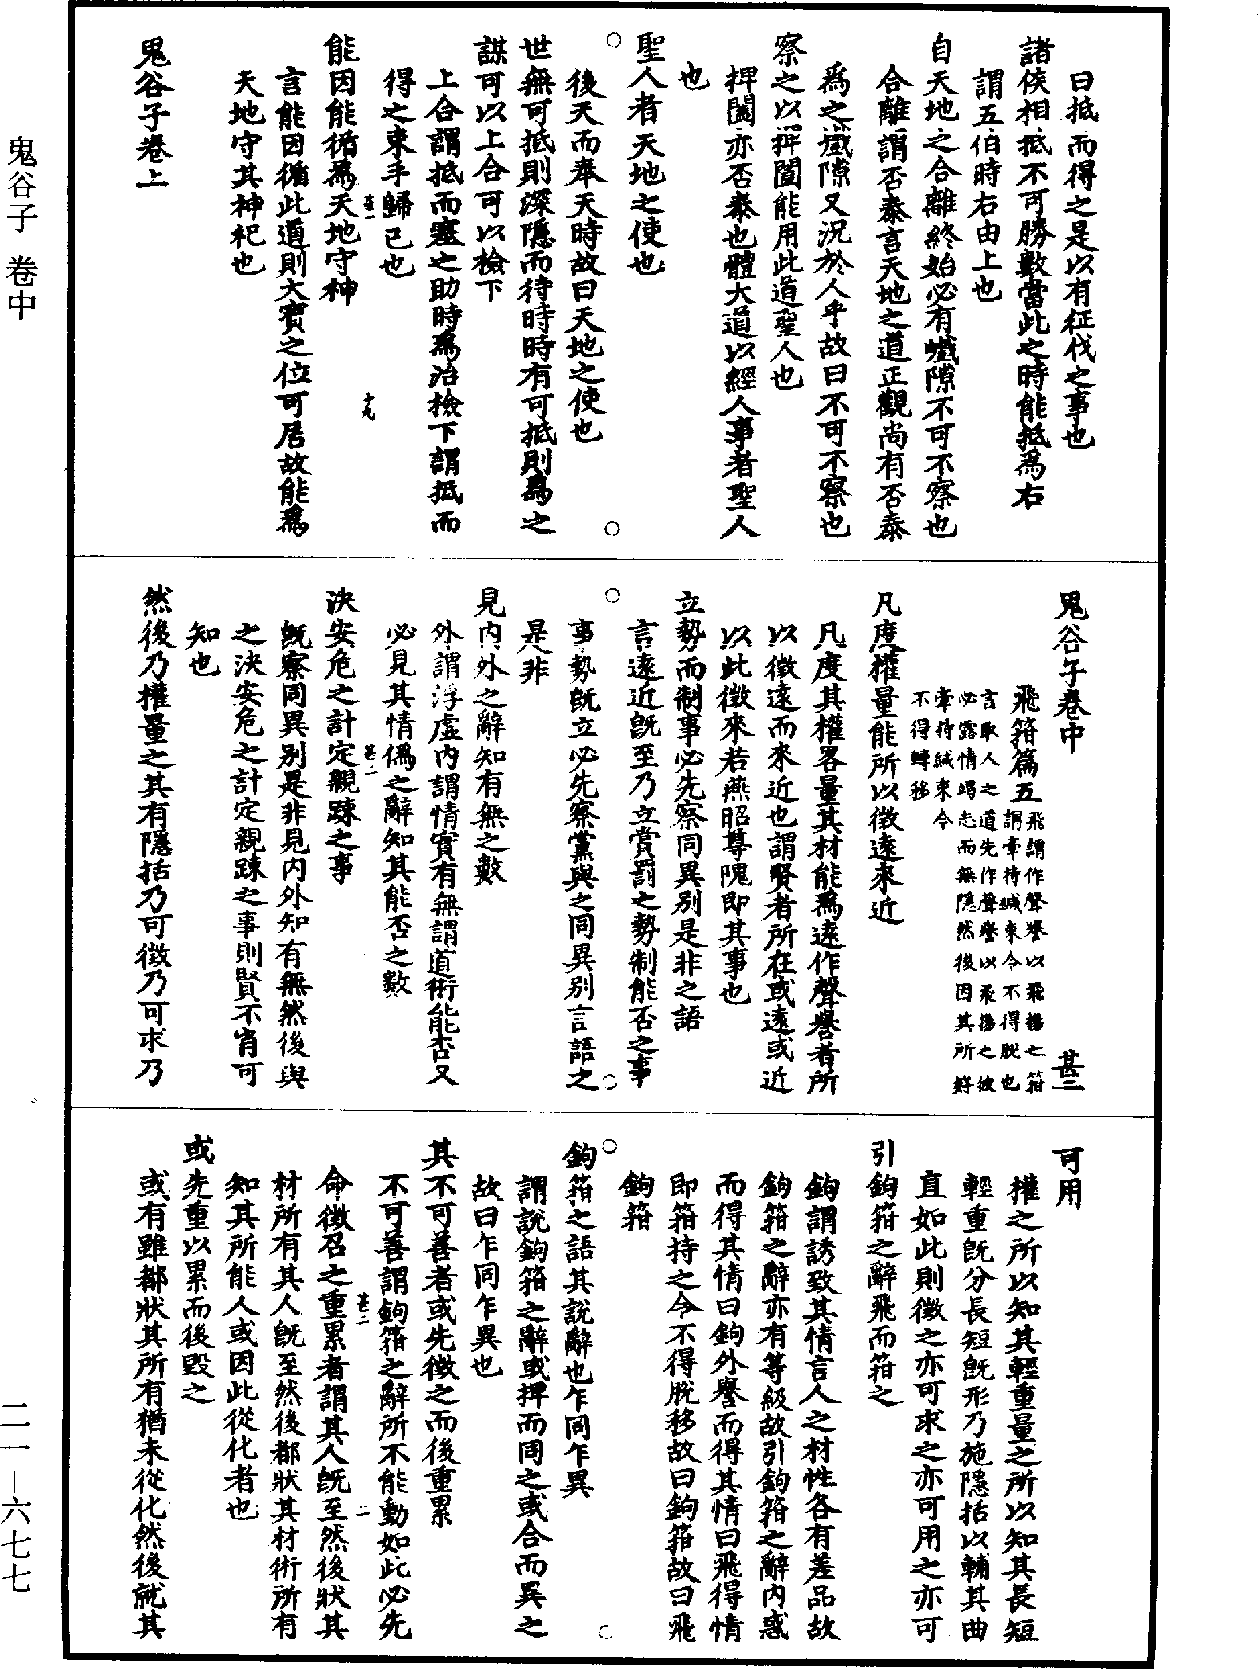 曰抵而得之是以有征伐之事也
諸侯相抵不可勝數當此之時能抵爲右
謂五伯時右由上也
自天地之合離終始必有巇隙不可不察也
合離謂否泰言天地之道正觀尚有否泰
爲之巇隙又況於人乎故曰不可不察也
察之以捭闔能用此道聖人也
捭闔亦否泰也體大道以經人事者聖人
也
聖人者天地之使也
後天而奉天時故曰天地之使也
世無可抵則深隱而待時時有可抵則爲之
謀可以上合可以檢下
上合謂抵而塞之助時爲治檢下謂抵而
得之束手歸己也
能因能循爲天地守神
言能因循此道則大寶之位可居故能爲
天地守其神祀也
鬼谷子卷上
鬼谷子卷中
甚二
飛箝篇五
飛謂作聲譽以飛揚之箝
謂牽持緘束令不得脫也
言取人之道先作聲譽以飛揚之彼
必露情竭志而無隱然後因其所好
牽持緘束令
不得轉移
凡度權量能所以徵遠來近
凡度其權略量其材能爲遠作聲譽者所
以徵遠而來近也謂賢者所在或遠或近
以此徵來若燕昭尊隗即其事也
立勢而制事必先察同異別是非之語
言遠近既至乃立賞罰之勢制能否之事
事勢既立必先察黨與之同異別言語之
是非
見內外之辭知有無之數
外謂浮虛內謂情實有無謂道術能否又
必見其情僞之辭知其能否之數
決安危之計定親踈之事
既察同異別是非見內外知有無然後與
之決安危之計定親踈之事則賢不肖可
知也
然後乃權量之其有隱括乃可徵乃可求乃
可用
權之所以知其輕重量之所以知其長短
輕重既分長短既形乃施隱括以輔其曲
直如此則徵之亦可求之亦可用之亦可
引鉤箝之辭飛而箝之
鉤謂誘致其情言人之材性各有差品故
鉤箝之辭亦有等級故引鉤箝之辭內惑
而得其情曰鉤外譽而得其情曰飛得情
即箝持之令不得脫移故曰鉤箝故曰飛
鉤箝
鉤箝之語其說辭也乍同乍異
謂說鉤箝之辭或捭而同之或合而異之
故曰乍同乍異也
其不可善者或先徵之而後重累
不可善謂鉤箝之辭所不能動如此必先
命徵召之重累者謂其人既至然後狀其
材所有其人既至然後都狀其材術所有
知其所能人或因此從化者也
或先重以累而後毀之
或有雖都狀其所有猶未從化然後就其
鬼谷子 卷中
二一—六七七